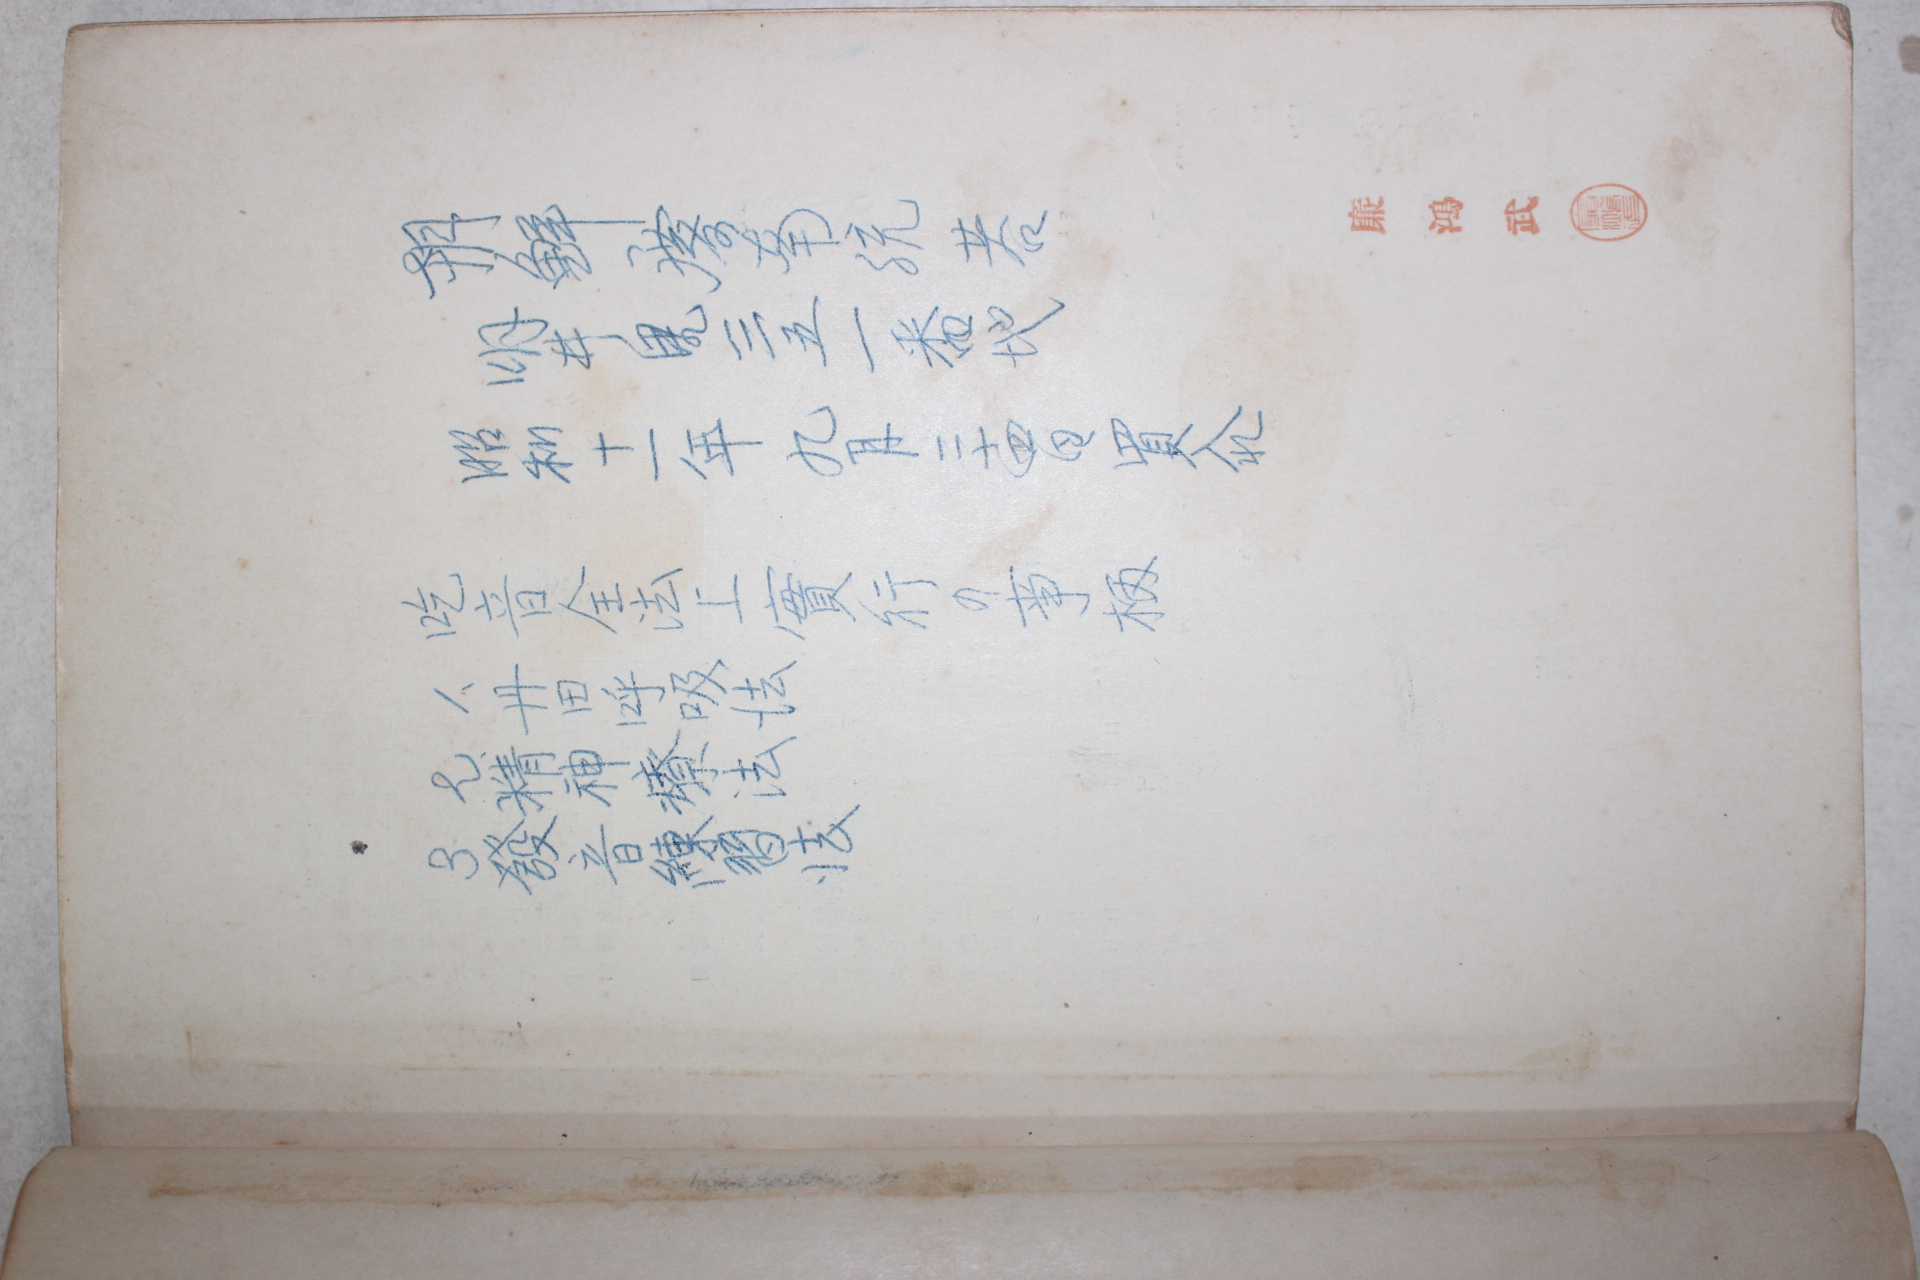 朝鮮慶南統営
明井里三五一番地
昭和十一年九月二十四日買入れ
吃音全法上實行の事柄
1、丹田呼吸法
2、精神療法
3發音練習法
廉鴻武